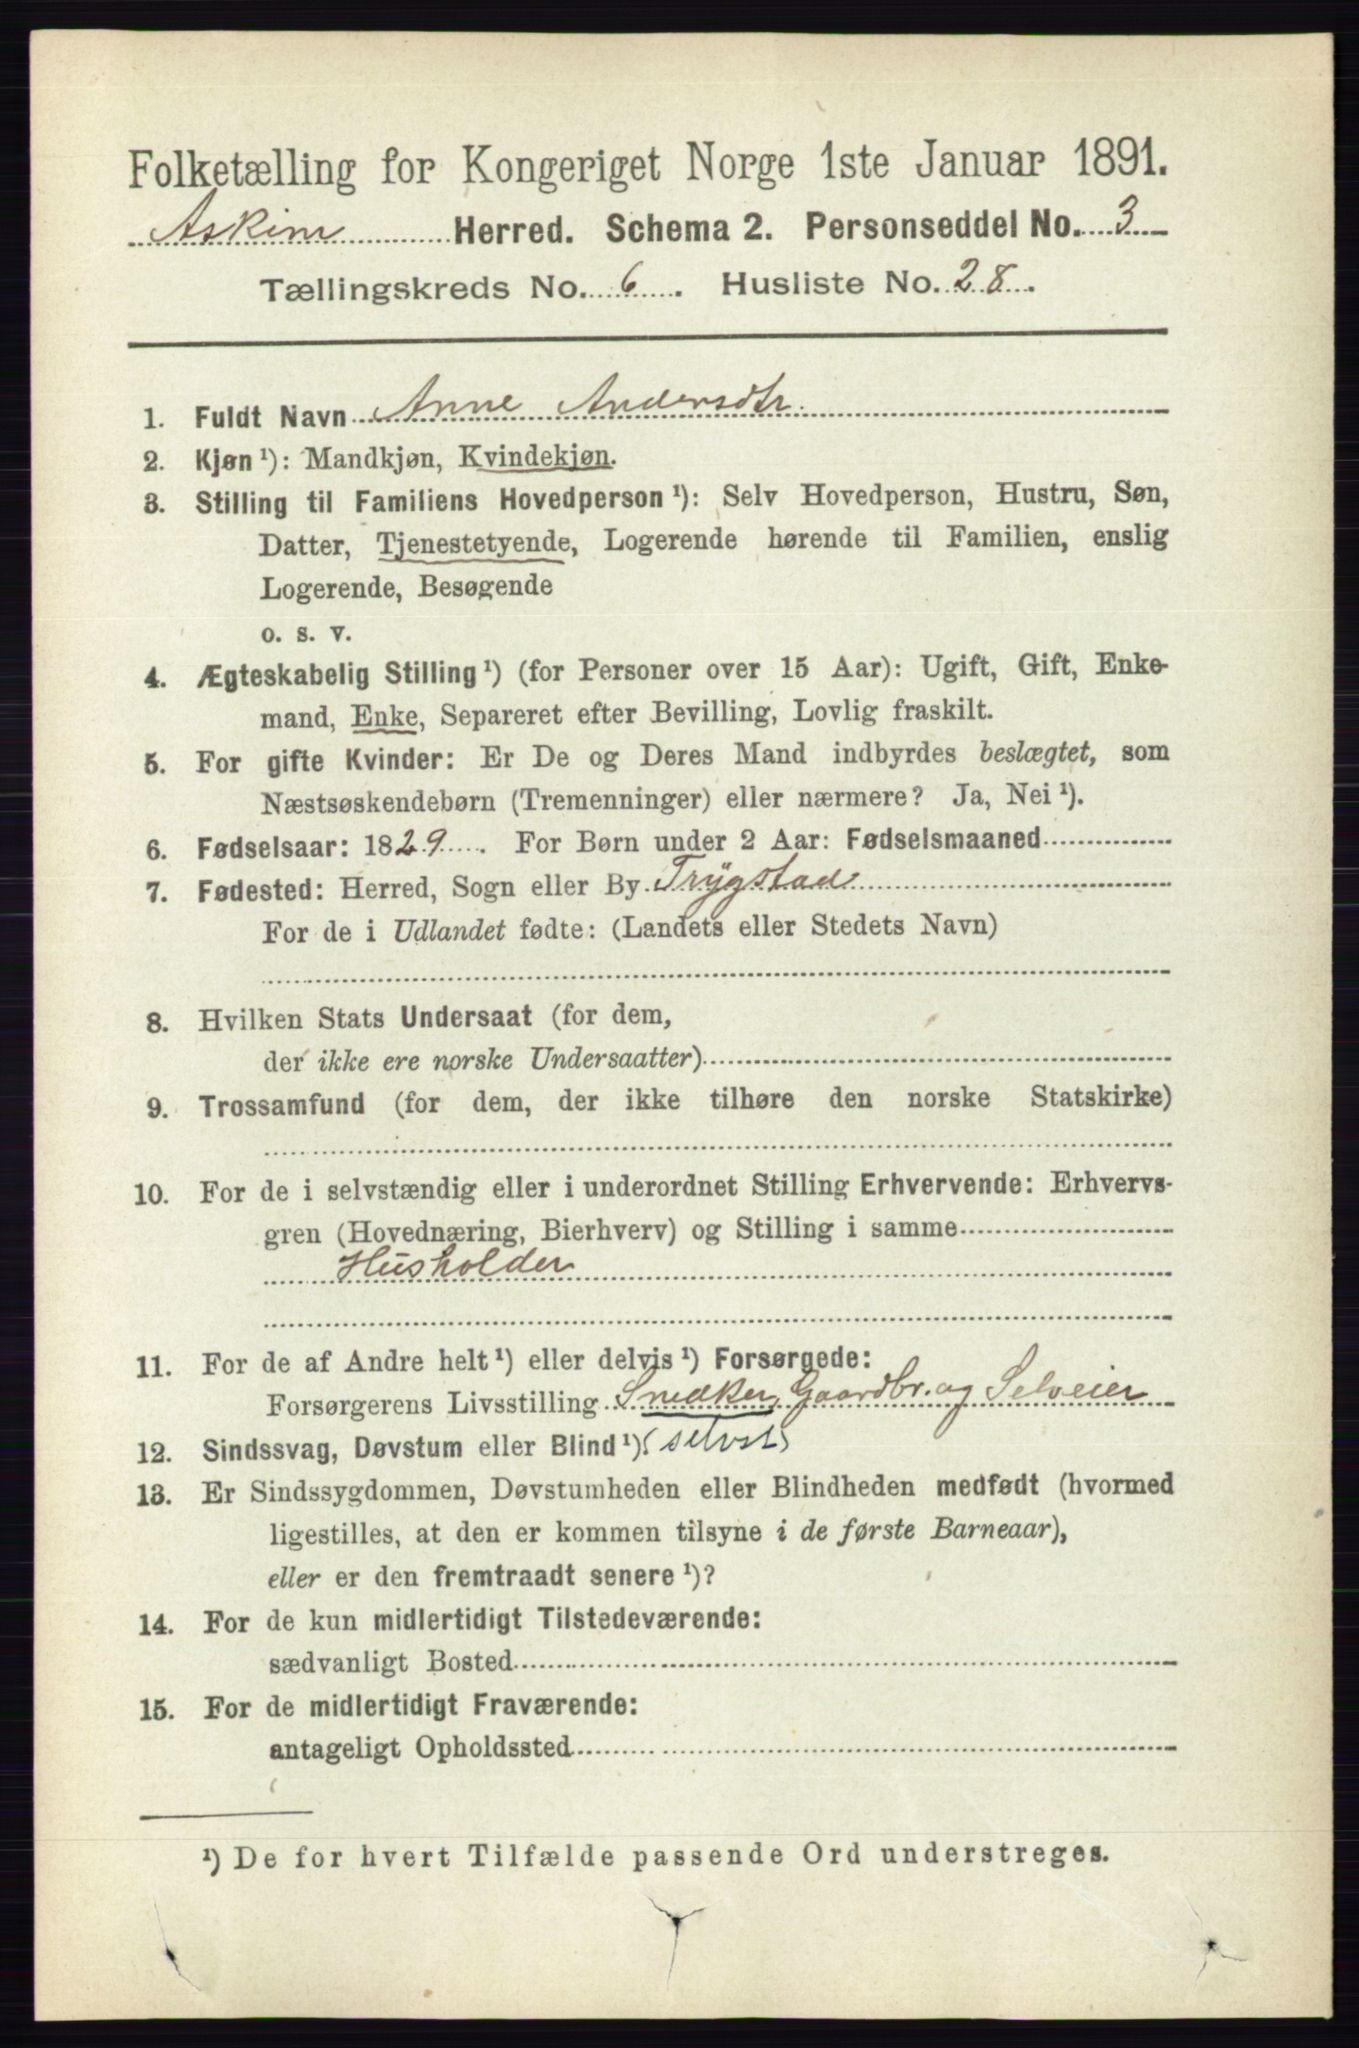 Folketælling for Kongeriget Norge 1ste Januar 1891.
Askim Herred. Schema 2. Personseddel No. 3
Tællingskreds No. 6. Husliste No. 28.
1. Fuldt Navn Anne Andersdtr.
2. Kjøn ¹): Mandkjøn, Kvindekjøn.
3. Stilling til Familiens Hovedperson ¹): Selv Hovedperson, Hustru, Søn,
Datter, Tjenestetyende, Logerende hørende til Familien, enslig
Logerende, Besøgende
o. s. v.
4. Ægteskabelig Stilling ¹) (for Personer over 15 Aar): Ugift, Gift, Enke-
mand, Enke, Separeret efter Bevilling, Lovlig fraskilt.
5. For gifte Kvinder: Er De og Deres Mand indbyrdes beslægtet, som
Næstsøskendebørn (Tremenninger) eller nærmere? Ja, Nei ¹).
6. Fødselsaar: 1829. For Børn under 2 Aar: Fødselsmaaned
7. Fødested: Herred, Sogn eller By Trygstad
For de i Udlandet fødte: (Landets eller Stedets Navn)
8. Hvilken Stats Undersaat (for dem,
der ikke ere norske Undersaatter)
9. Trossamfund (for dem, der ikke tilhøre den norske Statskirke)
10. For de i selvstændig eller i underordnet Stilling Erhvervende: Erhvervs-
gren (Hovednæring, Bierhverv) og Stilling i samme
Husholder
11. For de af Andre helt ¹) eller delvis ¹) Forsørgede:
Forsørgerens Livsstilling Snedker, Gaardbr. og Selveier
12. Sindssvag, Døvstum eller Blind ¹). (selvst)
13. Er Sindssygdommen, Døvstumheden eller Blindheden medfødt (hvormed
ligestilles, at den er kommen tilsyne i de første Barneaar),
eller er den fremtraadt senere ¹)?
14. For de kun midlertidigt Tilstedeværende:
sædvanligt Bosted
15. For de midlertidigt Fraværende:
antageligt Opholdssted
¹) De for hvert Tilfælde passende Ord understreges.